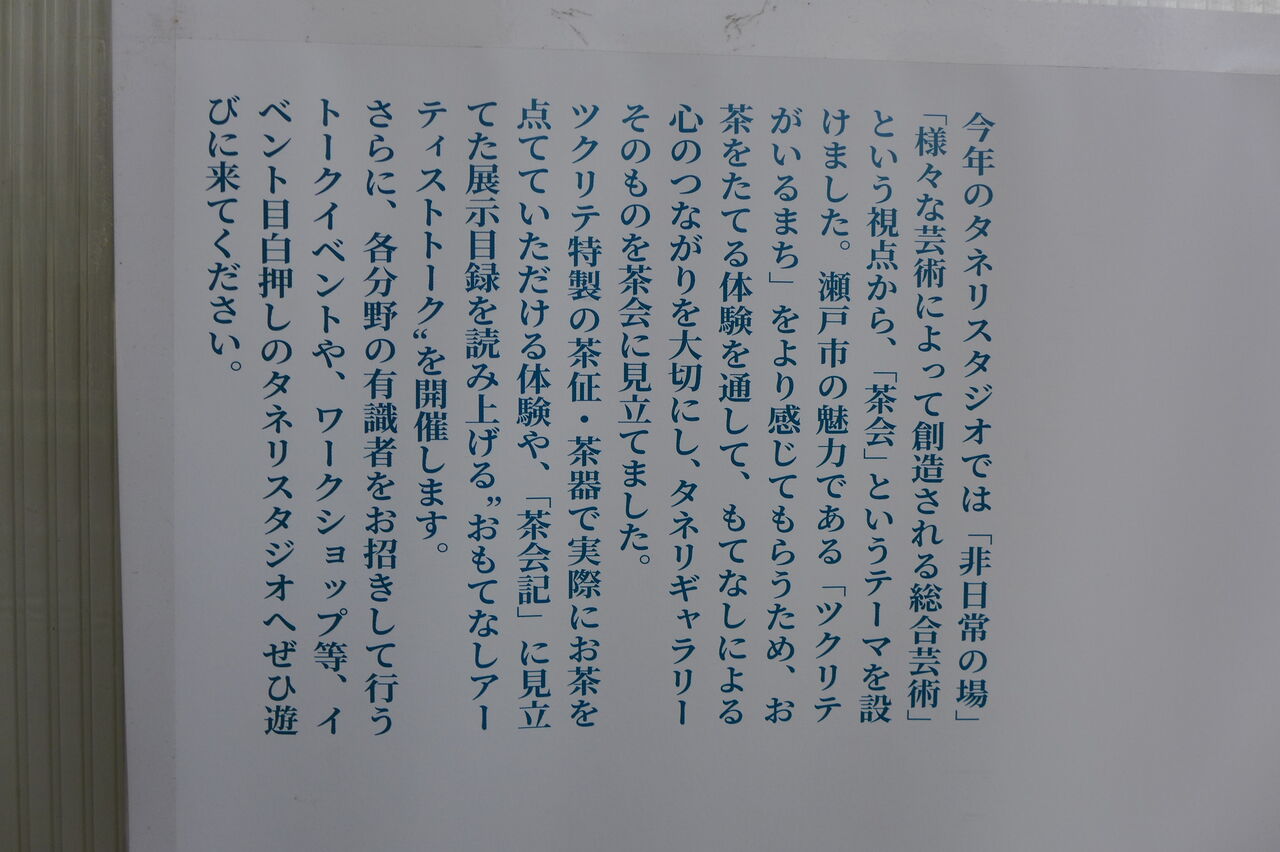 今年のタネリスタジオでは「非日常の場」
「様々な芸術によって創造される総合芸術」
という視点から、「茶会」というテーマを設
けました。瀬戸市の魅力である「ツクリテ
がいるまち」をより感じてもらうため、お
茶をたてる体験を通して、もてなしによる
心のつながりを大切にし、タネリギャラリー
そのものを茶会に見立てました。
ツクリテ特製の茶征・茶器で実際にお茶を
点てていただける体験や、「茶会記」に見立
てた展示目録を読み上げる”おもてなしアー
ティストトーク“を開催します。
さらに、各分野の有識者をお招きして行う
トークイベントや、ワークショップ等、イ
ベント目白押しのタネリスタジオへぜひ遊
びに来てください。